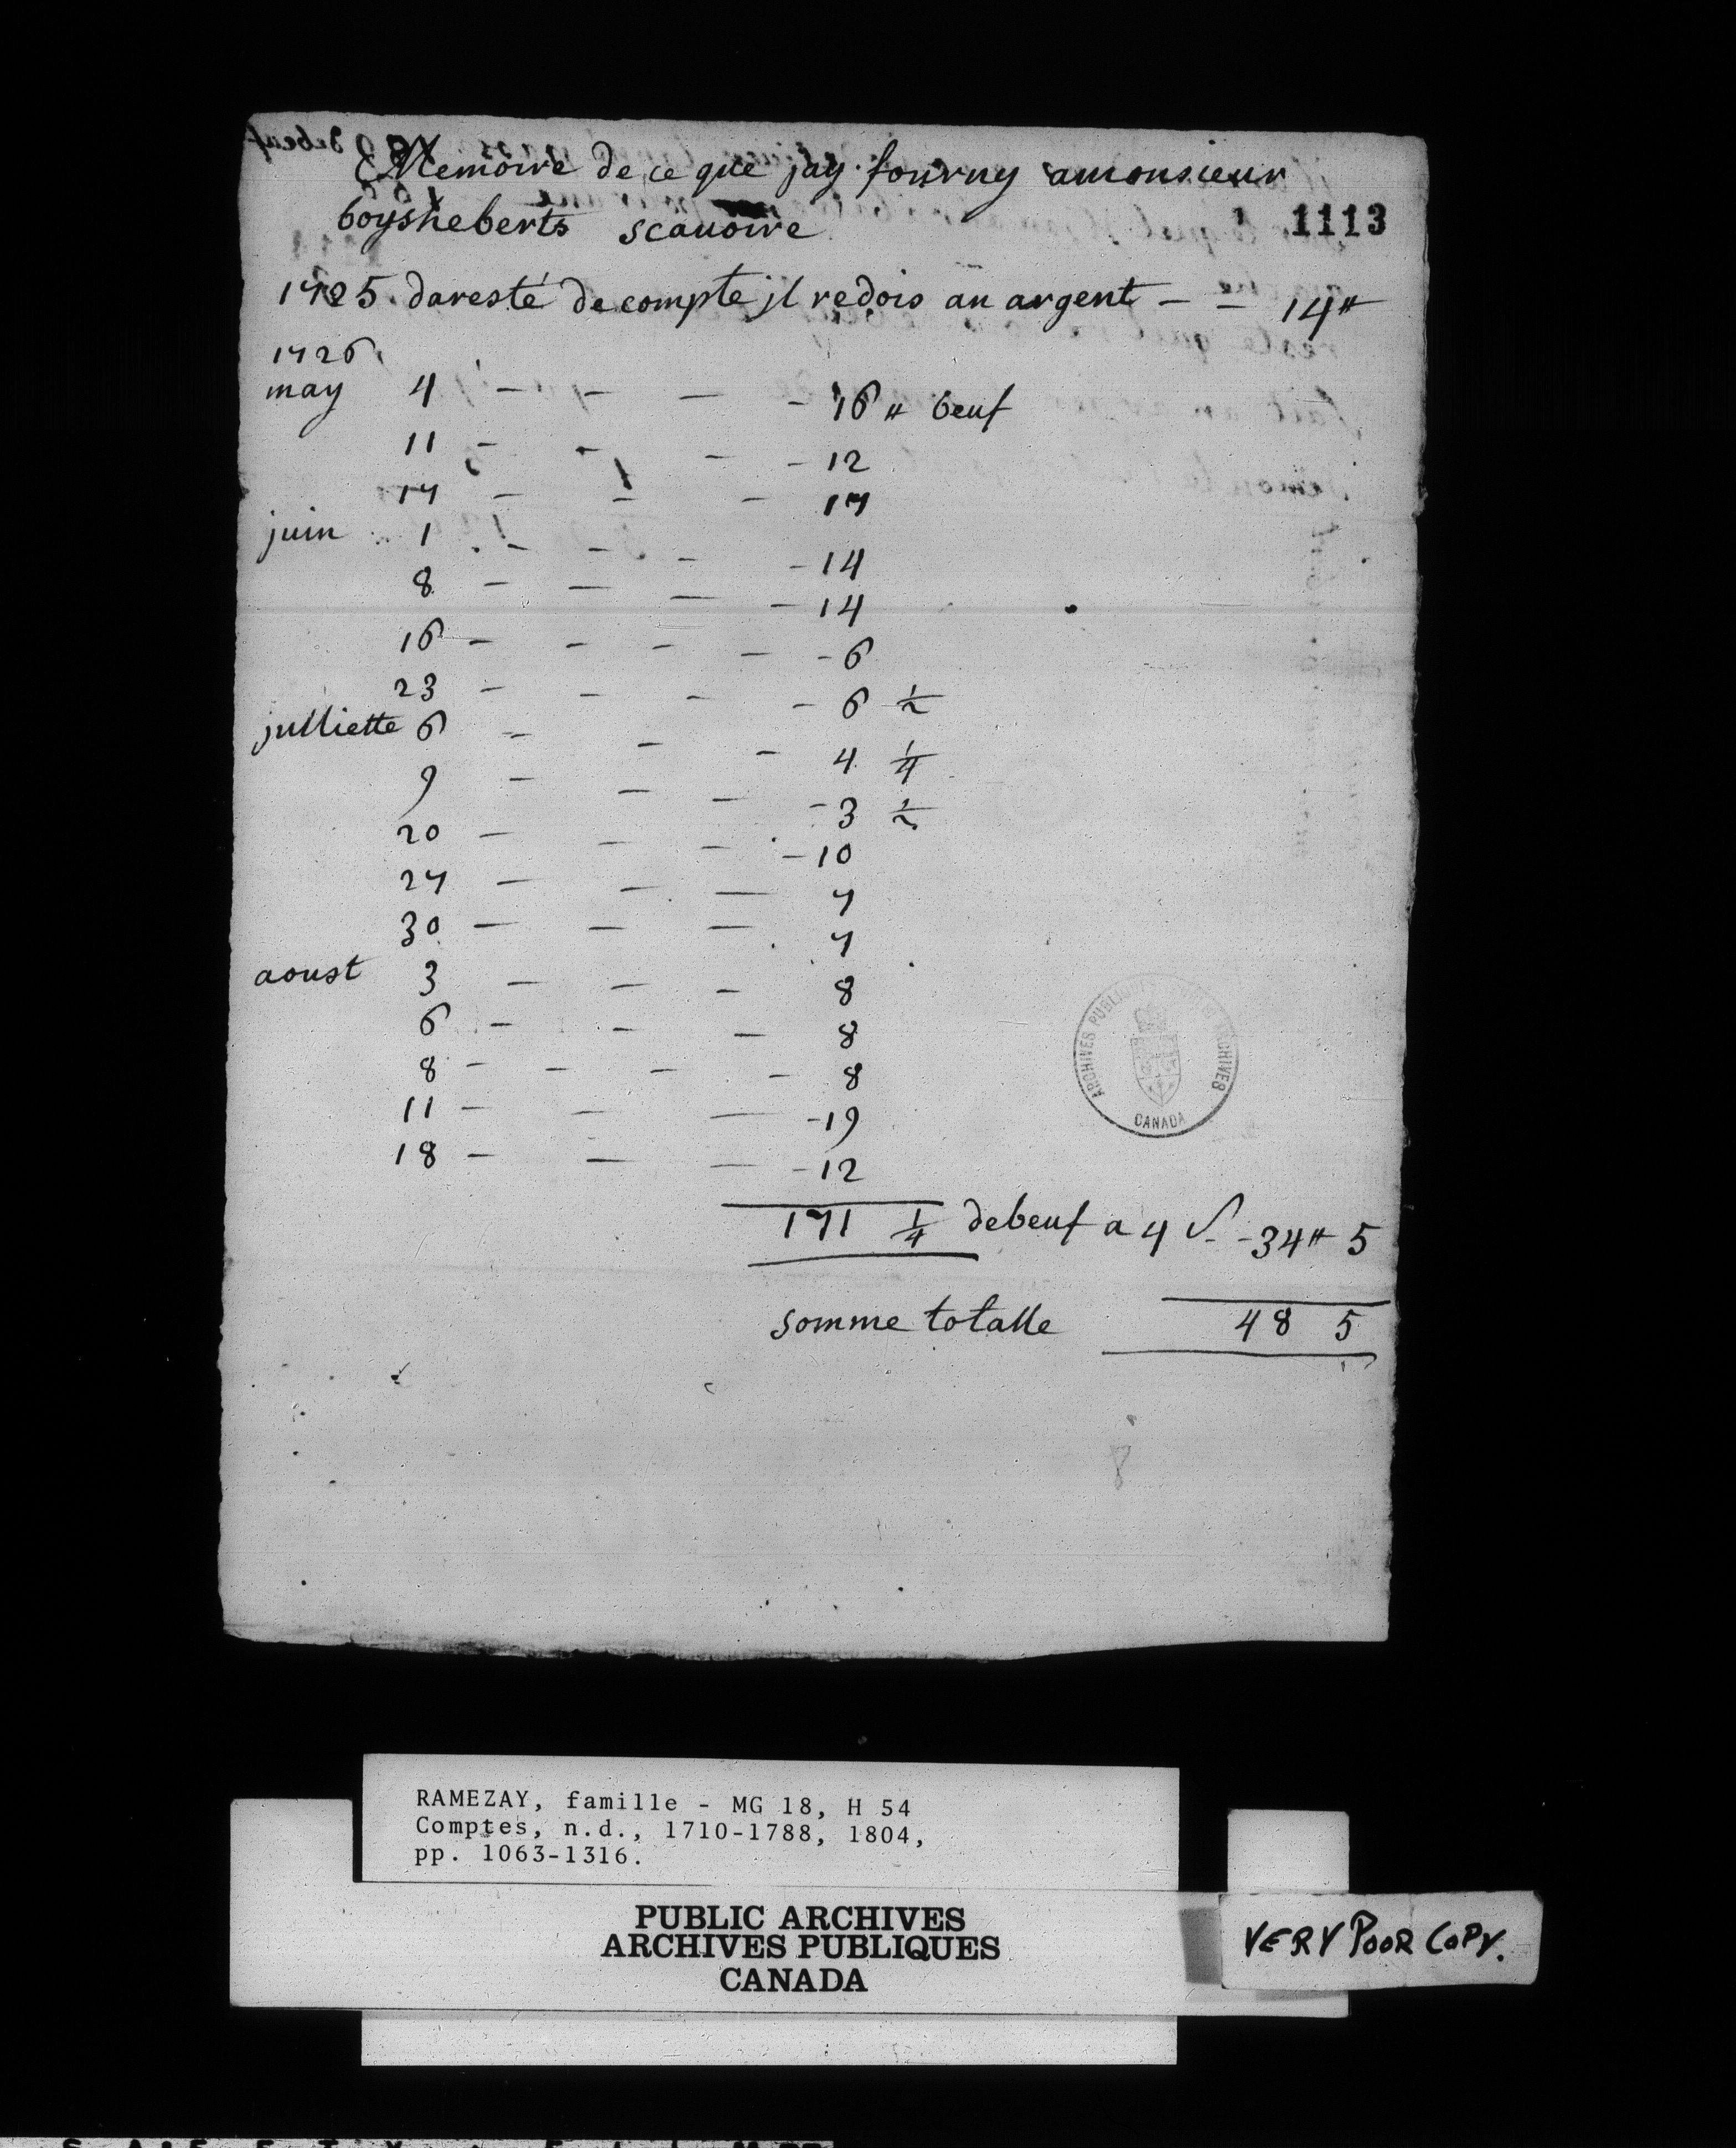 Memoire de ce que jay fourny amonsieur
boysheberts scauoire
1113
1725. dareste de compte jl redois an argent - - 14#
1726
may 4 - - - - 16 # beuf
11 - - - - 12
17 - - - 17
juin 1 - - - - 14
8 - - - - 14
16 - - - - - 6
23 - - - - 6 1/2
julliette 6 - - - 4 1/4
9 - - - - 3 1/2
20 - - - - 10
27 - - - 7
30 - - - 7
aoust 3 - - - 8
6 - - - 8
8 - - - - 8
11 - - - - 19
18 - - - - 12
171 1/4 debeuf a 4 s - - 34# 5
somme totalle 48 5
ARCHIVES PUBLIQUES PUBLIC ARCHIVES
CANADA
RAMEZAY, famille - MG 18, H 54
Comptes, n.d., 1710-1788, 1804,
pp. 1063-1316.
PUBLIC ARCHIVES
ARCHIVES PUBLIQUES
CANADA
VERY POOR COPY.